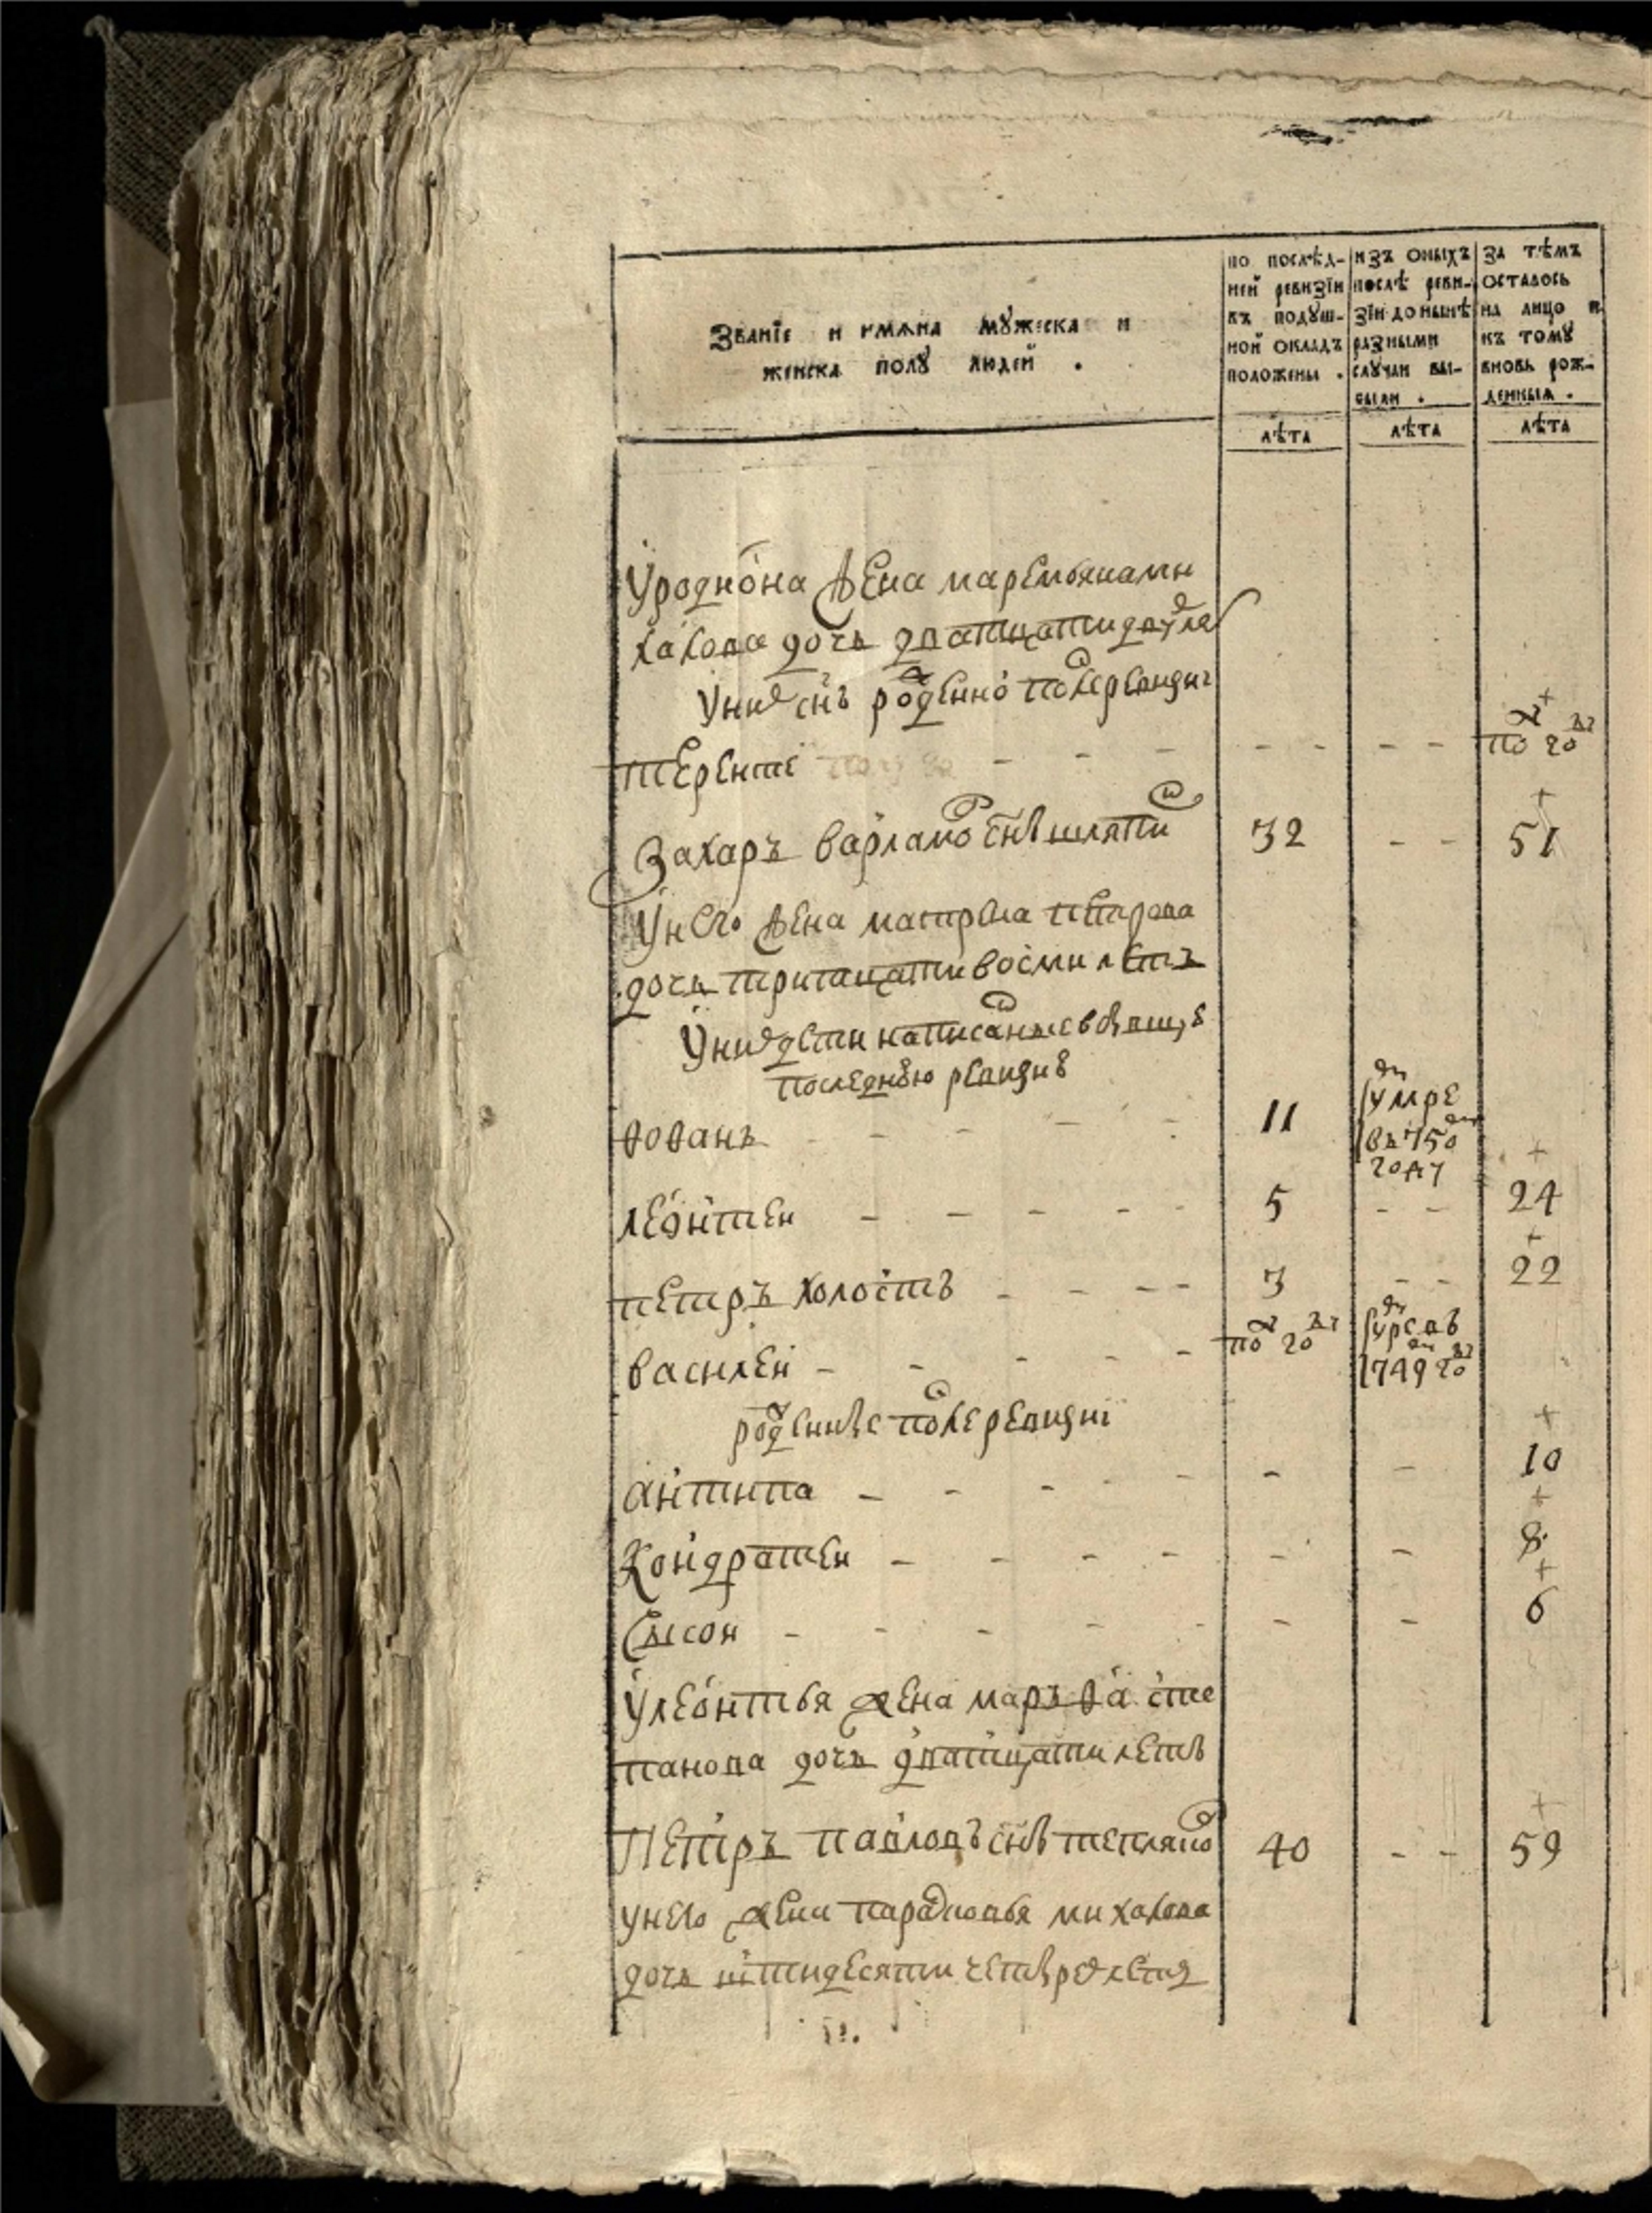 Званїе и имѧна мꙋжеска и
женска полꙋ людей .
по послѣд-
ней ревизїи
въ подꙋш-
ной окладъ
положены .
изъ оныхъ
послѣ реви-
зїи до нынѣ
разными
слꙋчаи вы-
были .
за тѣмъ
осталось
на лицо и
къ томꙋ
вновь рож-
денныѧ .
лѣта
лѣта
лѣта
У родиона жена маремьяна ми
хаилова дочь дватцати двух ле
У них снъ рожденно после ревизиі
терентеі - - - - - - - по году
Захаръ варламо снъ шляпи 32 - - 51
У него жена матрена петрова
дочь тритцати восми летъ
У них дети написаные в бывшую
последнюю ревизию
ѳоѳанъ - - - - - 11 умре въ 750 году
леонтеи - - - - - 5 - - 24
петръ холостъ - - - - 3 - - 22
василеи - - - - - по году умре въ 1749 году
рожденные после ревизиі
антипа - - - - - - - 10
кондратеи - - - - - - 8
Сысои - - - - - - - 6
У леонтья жена маръѳа сте
панова дочь дватцати летъ
Петръ павловъ снъ тепляко 40 - - 59
у него жена парасковья михаилова
дочь пятидесяти четырех летъ